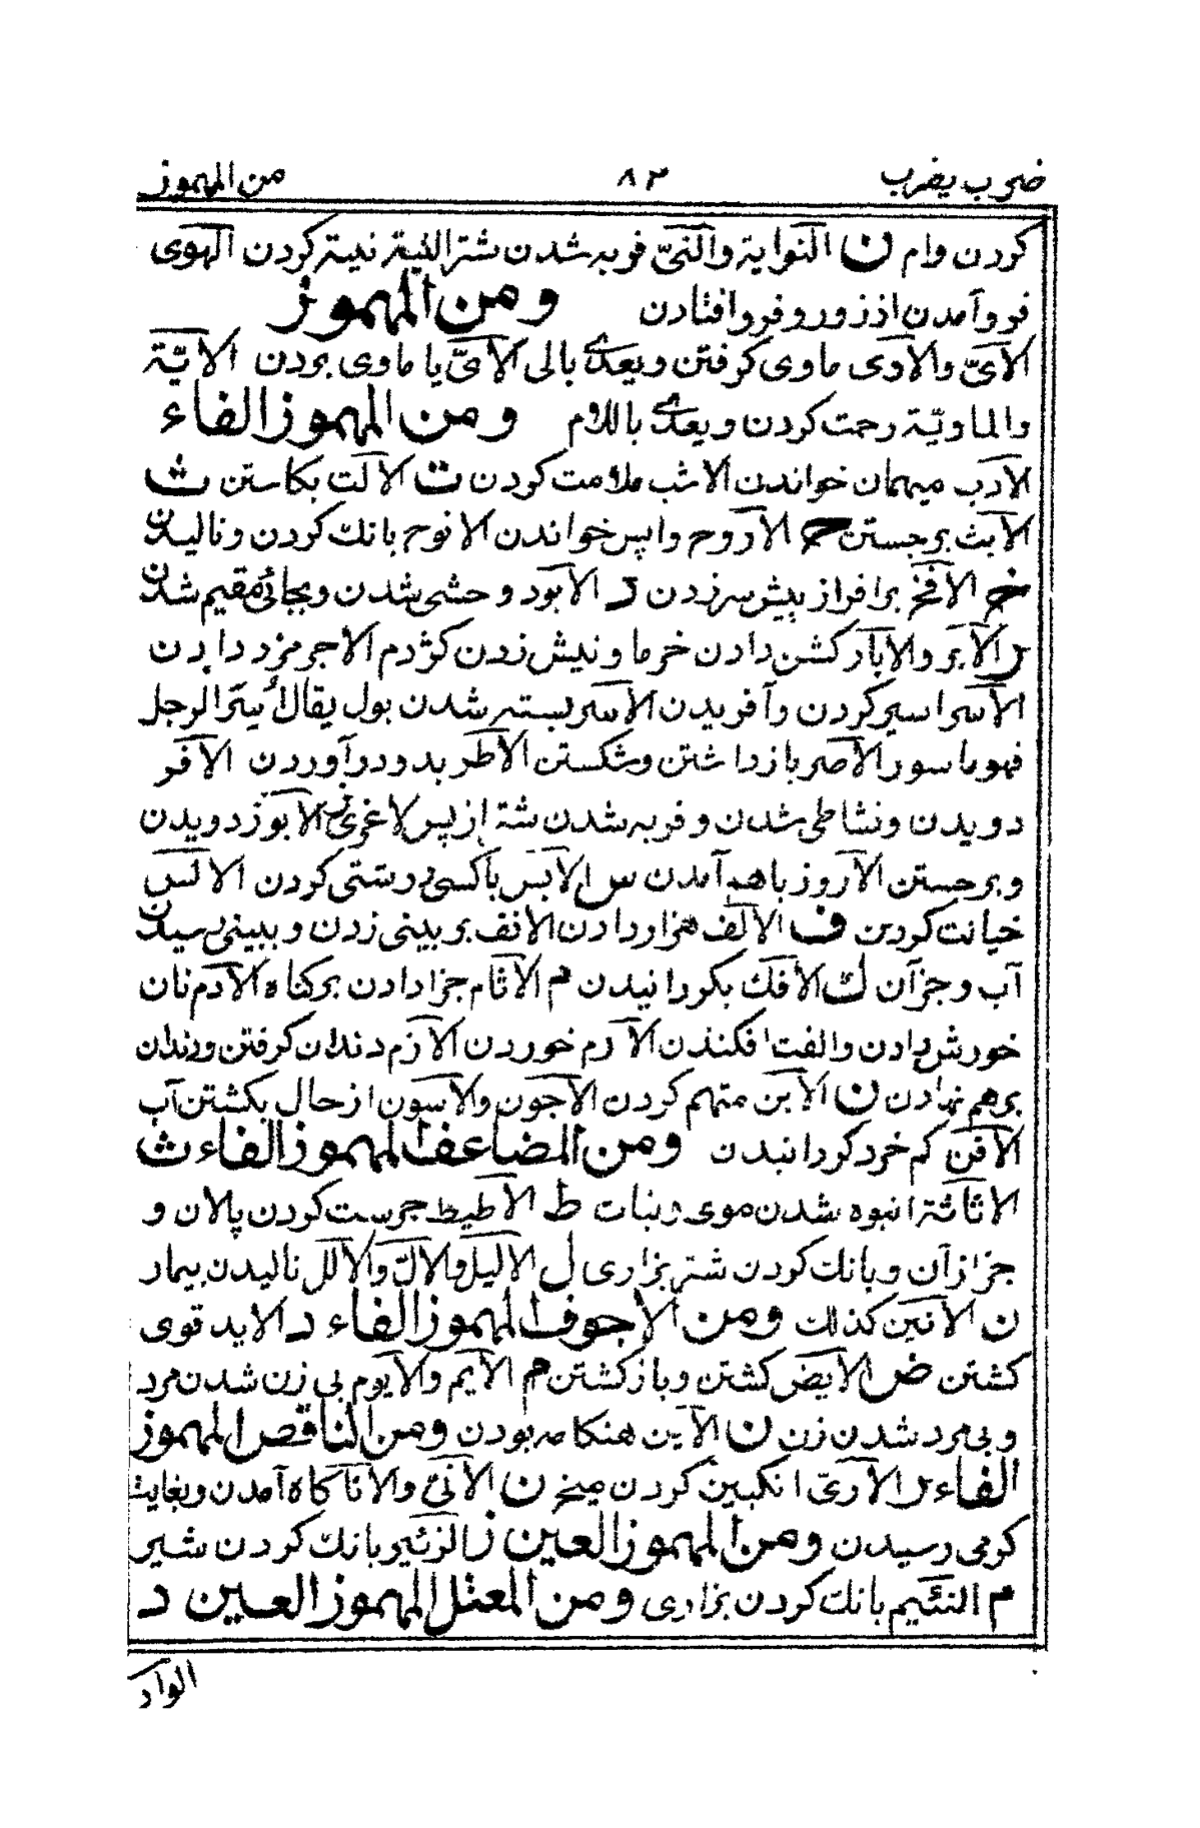 ضرب يضرب ٨٣ من المهموز
كردن وام ن النواية والنيّ فربه شدن شتر النية نيت كردن الهوى
فرو آمدن از زور و فرو افتادن ومن المهموز
الأىّ والأوى ماوى كرفتن ويعدى بالى الأىّ با ماوى بردن الأيّة
والماويّة رحمت كردن ويعدى باللام ومن المهموز الفاء
الأدب ميهمان خواندن الاشب ملامت كردن ت الألت بكاستن ث
الأبث برجستن ح الأروح واپس خواندن الانوح بانك كردن وناليدن
خ الأفخ برافراز پيش سر زدن د الأبود وحشى شدن وبجائى مقيم شدن
ر الأبر والابار كشن دادن خرما ونيش زدن كژدم الاجر مزد دادن
الأسر اسير كردن وآفريدن الأسر بسته شدن بول يقال أسر الرجل
فهو ماسور الأصر بازداشتن وشكستن الأطر بدو درآوردن الأفر
دويدن ونشاطى شدن وفربه شدن شتر از پس لاغرى ز الأبوز دويدن
وبرجستن الأروز باهم آمدن س الأبس باكسى درشتى كردن الألس
خيانت كردن ف الألف هزار دادن الأنف بر بينى زدن وببينى رسيدن
آب وجز آن ك الأفك بكردانيدن م الأثام جزا دادن بر كناه الأدم نان
خورش دادن والفت افكندن الأرم خوردن الأزم دندان كرفتن ودندان
برهم نهادن ن الأبن متهم كردن الأجون والأسون از حال بكشتن آب
الأفن كم خرد كردانيدن ومن المضاعف المهموز الفاء ث
الاثاثة انبوه شدن موى ونبات ط الأطيط جرست كردن پالان و
جز از آن وبانك كردن شتر بزارى ل الأليل والألّ والألل ناليدن بيمار
ن الأنين كذلك ومن الأجوف المهموز الفاء د الايد قوى
كشتن ض الأيض كشتن وباز كشتن م الأيم والأيوم بى زن شدن مرد
وبى مرد شدن زن ن الأين هنكامه بودن ومن الناقص المهموز
الفاء ر الأرى انكبين كردن منج ن الأنى والأنا كاه آمدن وبغايت
كرمى رسيدن ومن المهموز العين ز الزئير بانك كردن شير
م النئيم بانك كردن بزارى ومن المعتل المهموز العين د
الوأد